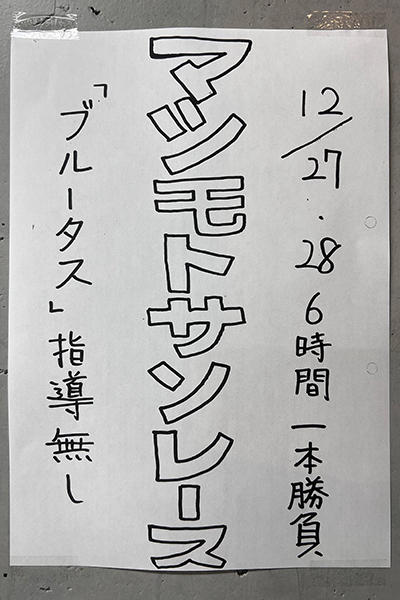 12/27・28 6時間一本勝負
マツモトサンレース
「ブルータス」指導無し